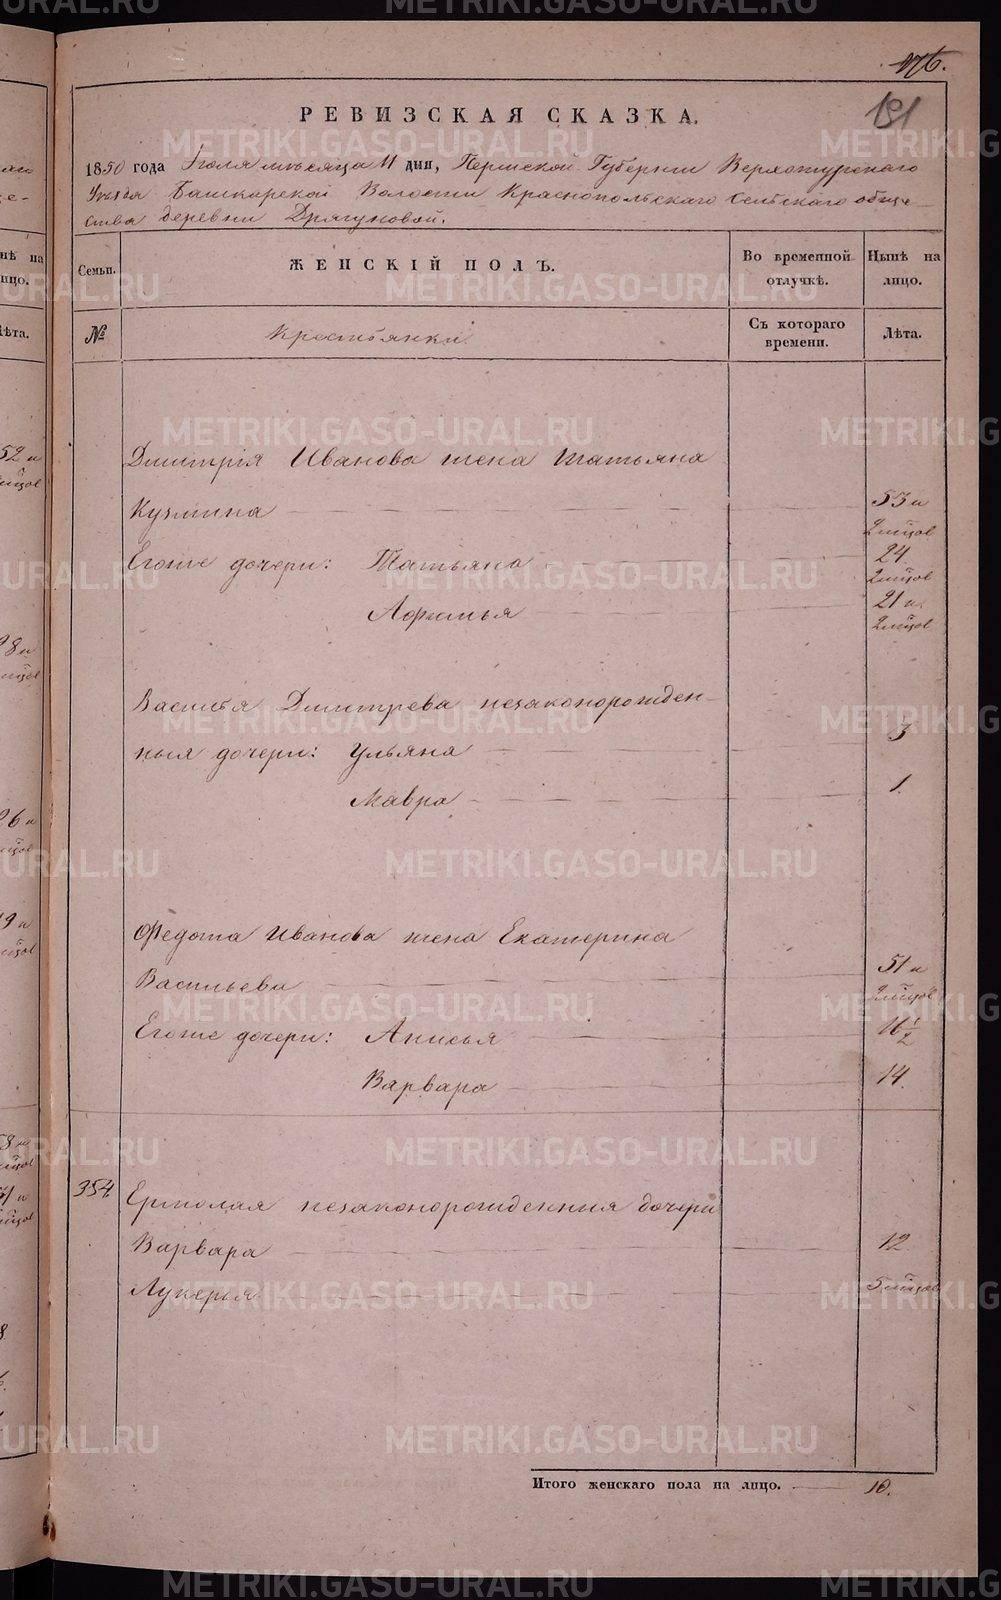 176.
191
РЕВИЗСКАЯ СКАЗКА.
1850 года Іюля мѣсяца 11 дня, Пермской Губерніи Верхотурскаго
Уѣзда Башкарской Волости Краснопольскаго Сельскаго обще-
ства деревни Дрягуновой.
Семьи.
ЖЕНСКІЙ ПОЛЪ.
Во временной отлучкѣ.
Нынѣ на лицо.
№
Крестьянки
Съ котораго времени.
Лѣта.
Дмитрія Иванова жена Татьяна
Кузмина 53 и 2 мѣцов
Егоже дочери: Татьяна 24. 2 мѣцов
Афимья 21 и 2 мѣцов
Василья Дмитрева незаконорожден-
ныя дочери: Ульяна 3
Мавра 1.
Федота Иванова жена Екатерина
Васильева 51 и 2 мѣцов
Егоже дочери: Анисья 16 1/2
Варвара 14.
354. Ермолая незаконорожденныя дочери
Варвара 12
Лукерья 5 мѣцов
Итого женскаго пола на лицо. 10.
METRIKI.GASO-URAL.RU